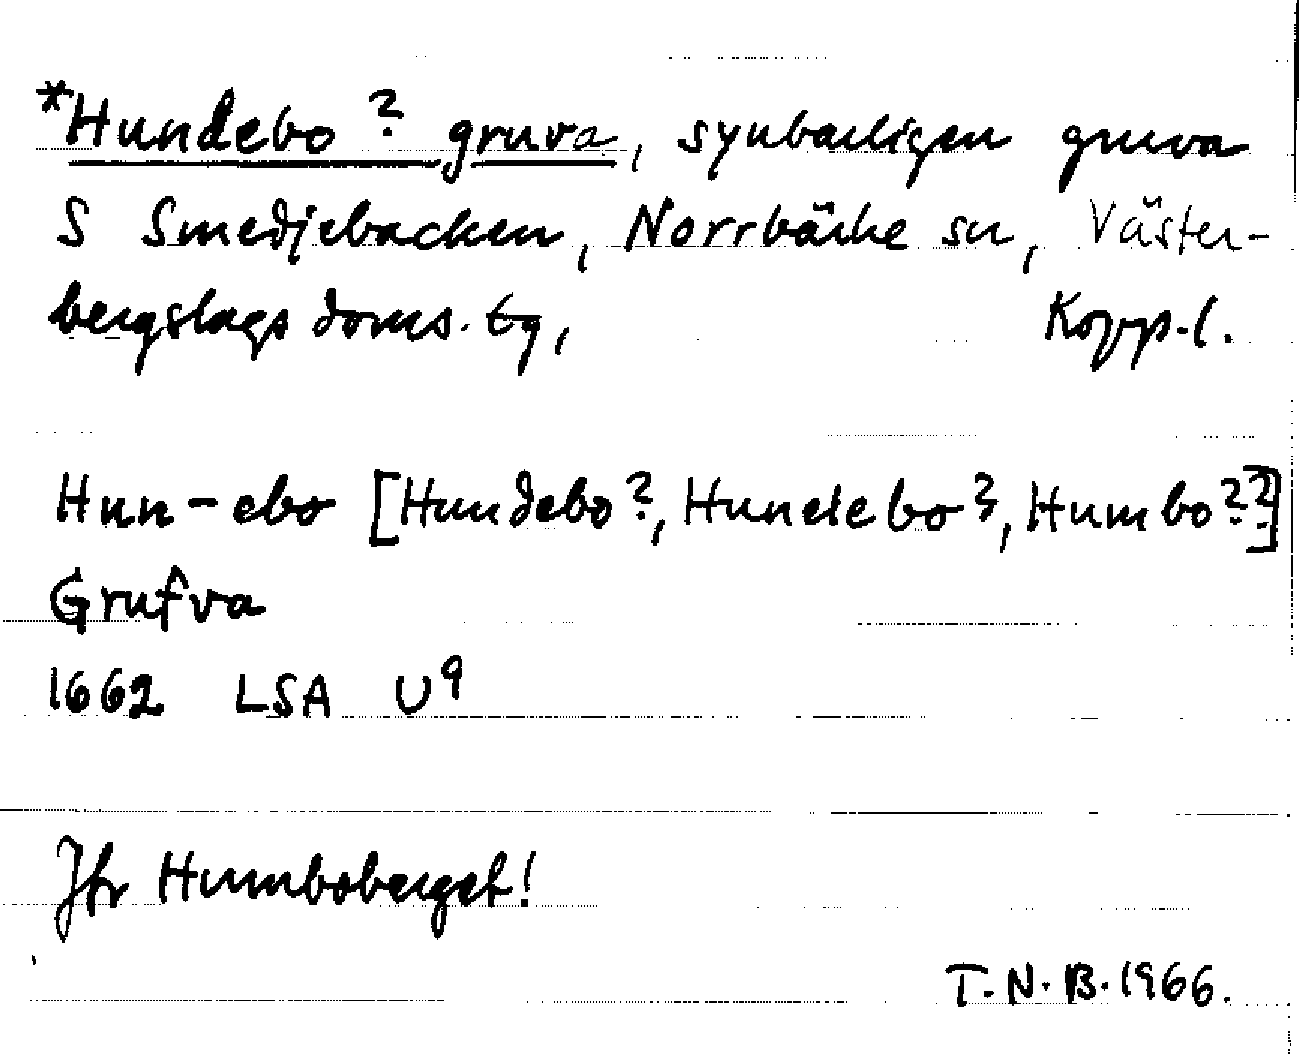 *Hundebo? gruva, synbarligen gruva
S Smedjebacken, Norrbärke sn, Väster-
bergslags doms. tg, Kopp. l.
Hun-ebo [Hundebo?, Hunelebo?, Humbo??]
Grufva
1662 LSA U9
Jfr Humboberget!
T.N.B. 1966.